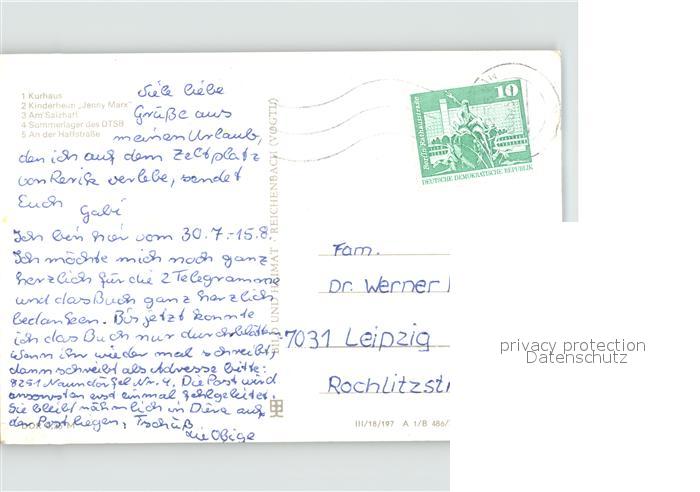 1 Kurhaus
2 Kinderheim „Jenny Marx"
3 Am Salzhaff
4 Sommerlager des DTSB
5 An der Haffstraße
Viele liebe
Grüße aus
meinen Urlaub,
den ich auf dem Zeltplatz
von Rerik verlebe, sendet
Euch
Gabi
Ich bin hier vom 30.7.-15.8.
Ich möchte mich noch ganz
herzlich für die 2 Telegramme
und das Buch ganz herzlich
bedanken. Bis jetzt konnte
ich das Buch nur durchblättern
Wenn ihr wieder mal schreibt,
dann schreibt als Adresse bitte:
8251 Naundörfel Nr. 4. Die Post wird
ansonsten erst einmal fehlgeleitet.
Sie bleibt nähmlich in Diera auf
der Post liegen, Tschüß
die Obige
BILD UND HEIMAT · REICHENBACH (VOGTL)
10
Berlin Rathausstraße
DEUTSCHE DEMOKRATISCHE REPUBLIK
Fam.
Dr. Werner
7031 Leipzig
Rochlitzstr
III/18/197 A 1/B 486/
privacy protection
Datenschutz